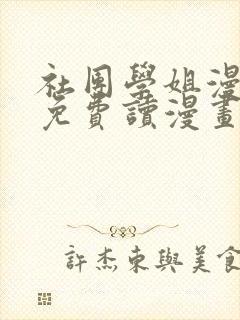 社团學姐漫
免費讀漫畫
許杰東與美食